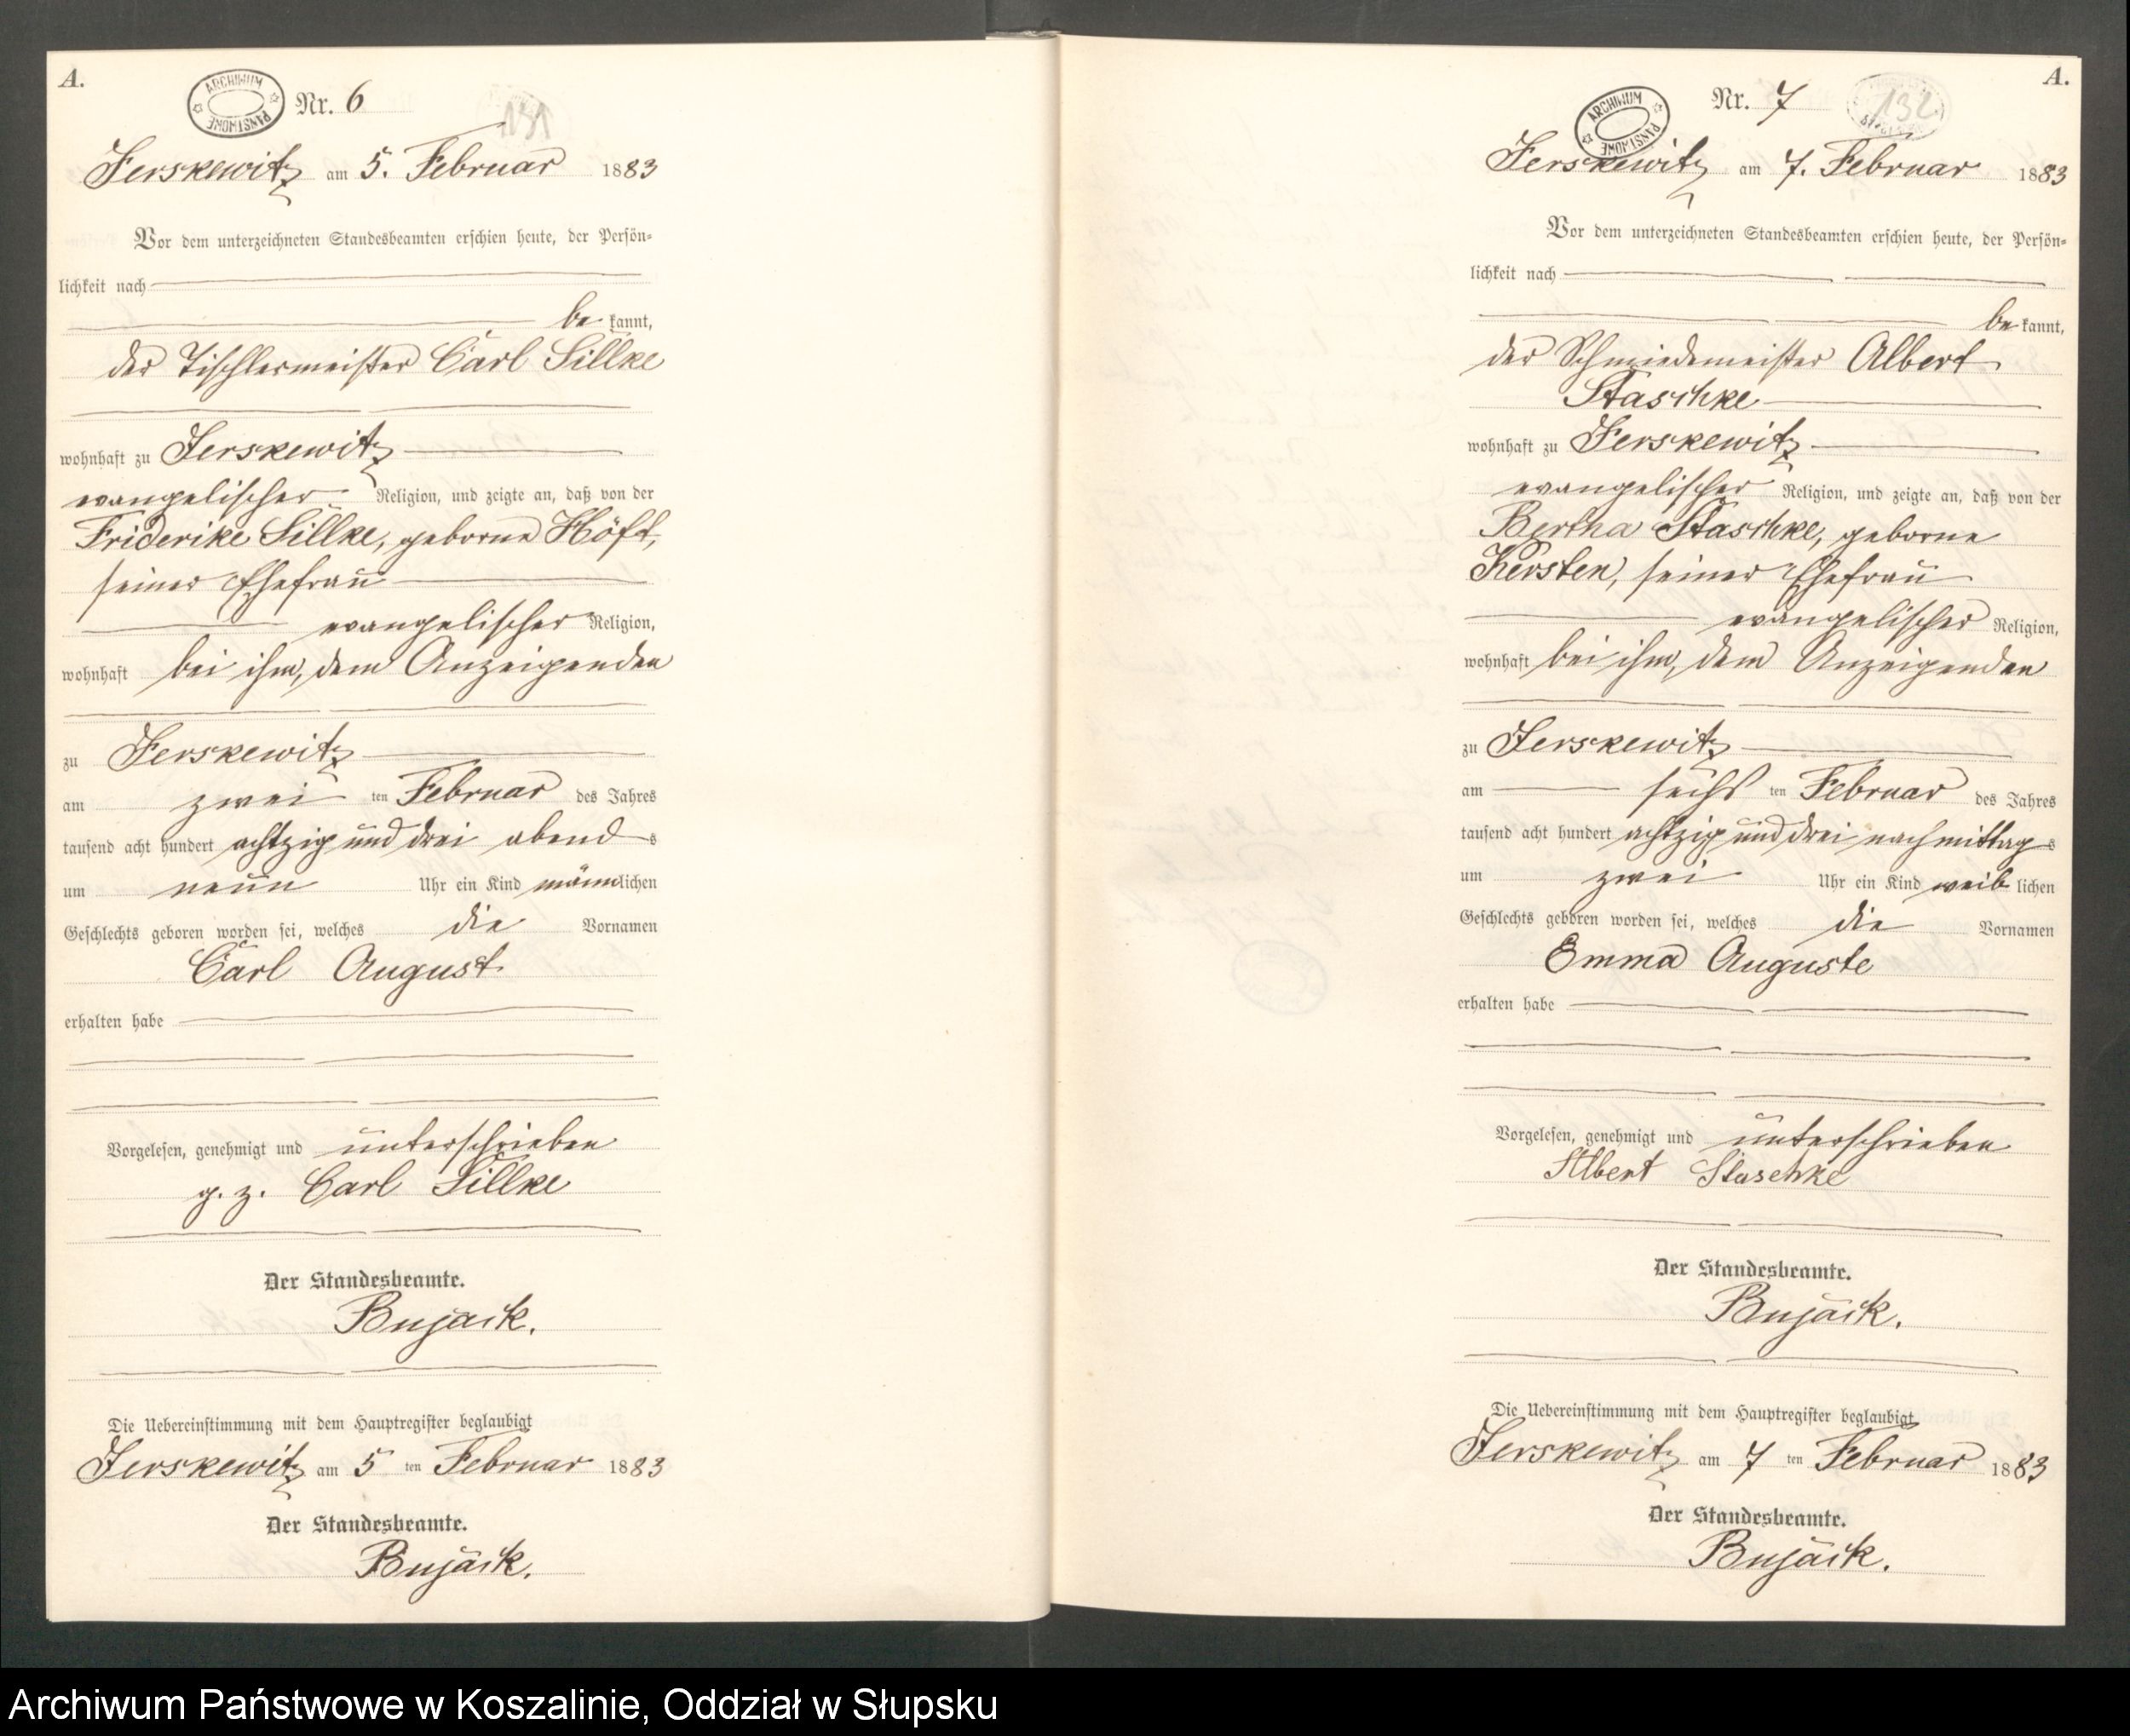 A.
ARCHIWUM PAŃSTWOWE
Nr. 6
131
Jerskewitz am 5. Februar 1883
Vor dem unterzeichneten Standesbeamten erschien heute, der Persön-
lichkeit nach
be kannt,
der Tischlermeister Carl Sillke
wohnhaft zu Jerskewitz
evangelischer Religion, und zeigte an, daß von der
Friderike Sillke, geborne Höft,
seiner Ehefrau
evangelischer Religion,
wohnhaft bei ihm, dem Anzeigenden
zu Jerskewitz
am zwei ten Februar des Jahres
tausend acht hundert achtzig und drei abend s
um neun Uhr ein Kind männlichen
Geschlechts geboren worden sei, welches die Vornamen
Carl August
erhalten habe
Vorgelesen, genehmigt und unterschrieben
g. z. Carl Sillke
Der Standesbeamte.
Bujack.
Die Uebereinstimmung mit dem Hauptregister beglaubigt
Jerskewitz am 5 ten Februar 1883
Der Standesbeamte.
Bujack.
A.
ARCHIWUM PAŃSTWOWE
Nr. 7
132
Jerskewitz am 7. Februar 1883
Vor dem unterzeichneten Standesbeamten erschien heute, der Persön-
lichkeit nach
be kannt,
der Schmiedemeister Albert
Staschke
wohnhaft zu Jerskewitz
evangelischer Religion, und zeigte an, daß von der
Bertha Staschke, geborne
Kersten, seiner Ehefrau
evangelischer Religion,
wohnhaft bei ihm, dem Anzeigenden
zu Jerskewitz
am sechs ten Februar des Jahres
tausend acht hundert achtzig und drei nachmittag s
um zwei Uhr ein Kind weib lichen
Geschlechts geboren worden sei, welches die Vornamen
Emma Auguste
erhalten habe
Vorgelesen, genehmigt und unterschrieben
Albert Staschke
Der Standesbeamte.
Bujack.
Die Uebereinstimmung mit dem Hauptregister beglaubigt
Jerskewitz am 7 ten Februar 1883
Der Standesbeamte.
Bujack.
Archiwum Państwowe w Koszalinie, Oddział w Słupsku